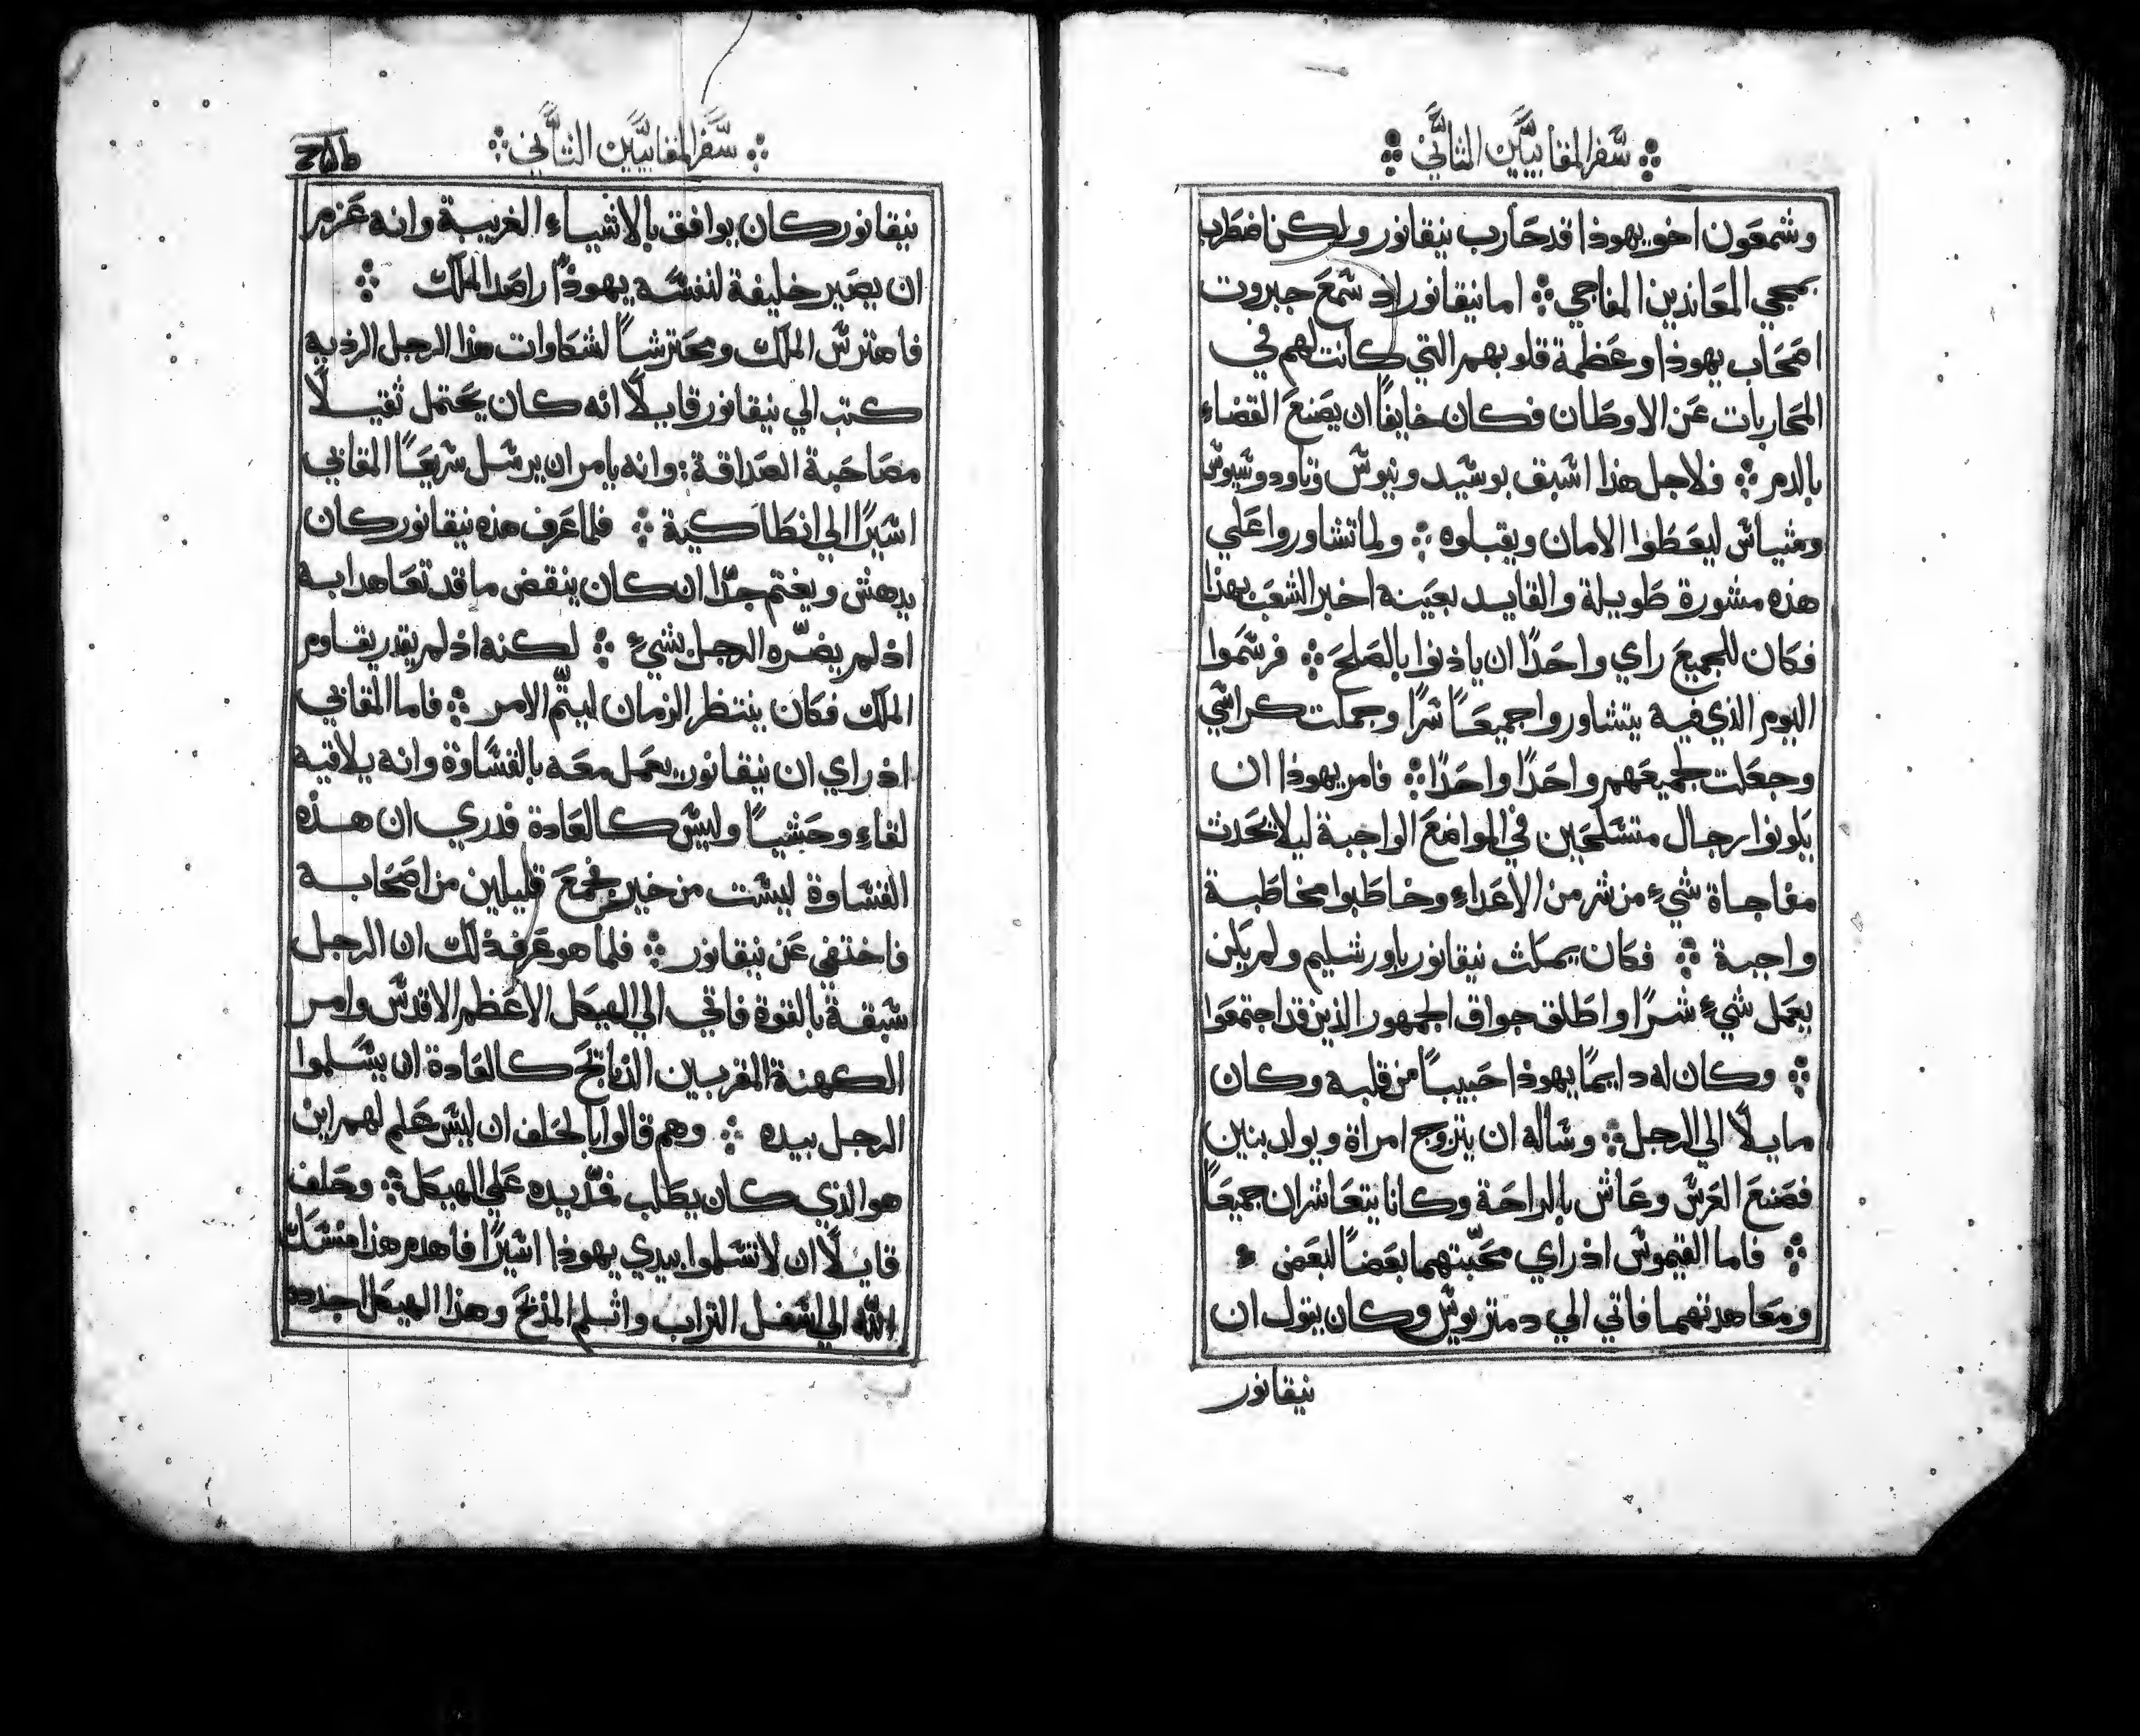 سفر المقابيين الثاني
وشمعون اخو يهوذا قد حارب نيقانور ولكن اضطرب
بمجي المعاندين المفاجي ❖ اما نيقانور اذ سمع جبروت
اصحاب يهوذا وعظمة قلوبهم التي كانت لهم في
المحاربات عن الاوطان فكان خايفاً ان يصنع القضاء
بالدم ❖ فلاجل هذا اسبق بوسيد ونيوس وتاودوسيوس
ومتياس ليعطوا الامان ويقبلوه ❖ ولما تشاوروا علي
هذه مشورة طويلة والقايد بعينه اخبر الشعب بهذا
فكان للجميع راي واحداً ان ياذنوا بالصلح ❖ فرسموا
اليوم الذي فيه يتشاوروا جميعاً سراً وحملت كراسي
وجعلت لجميعهم واحداً واحداً ❖ فامر يهوذا ان
يكونوا رجال متسلحين في المواضع الواجبة ليلا تحدث
مفاجاة شيء من شر من الاعداء وخاطبوا مخاطبة
واجبة ❖ فكان يمكث نيقانور باورشليم ولم يكن
يعمل شيء شراً واطلق جواق الجمهور الذين قد اجتمعوا
❖ وكان له دايماً يهوذا حبيباً من قلبه وكان
مايلاً الي الرجل ❖ وساله ان يتزوج امراة ويولد بنين
فصنع العرس وعاش بالراحة وكانا يتعاشران جميعاً
❖ فاما القيموس اذ راي محبّتهما بعضاً لبعض
ومعاهدتهما فاتي الي دمتريوس وكان يقول ان
نيقانور
سفر المقابيين الثاني
نيقانور كان يوافق بالاشياء الغريبة وانه عزم
ان يصير خليفة لنفسه يهوذا راصد الملك ❖
فاهترس الملك ومحترساً لشكاوات هذا الرجل الرذيه
كتب الي نيقانور قايلاً انه كان يحتمل ثقيلاً
مصاحبة الصداقة : وانه يامر ان يرسل سريعاً المقابي
اسيراً الي انطاكية ❖ فلما عرف هذه نيقانور كان
يدهش ويغتم جدّا ان كان ينقض ما قد تعاهدا به
اذ لم يضرّه الرجل بشيءٍ ❖ لكنه اذ لم يقدر يقاوم
الملك فكان ينتظر الزمان ليتمّ الامر ❖ فاما المقابي
اذ راي ان نيقانور يعمل معه بالقساوة وانه يلاقيه
لقاء وحشياً وليس كالعادة فدري ان هذه
القساوة ليست من خير فجمع قليلين من اصحابه
فاختفي عن نيقانور ❖ فلما هو عرف ذلك ان الرجل
سبقه بالقوة فاتي الي الهيكل الاعظم الاقدس وامر
الكهنة المقربين الذبايح كالعادة ان يسلموا
الرجل بيده ❖ وهم قالوا بالحلف ان ليس علم لهم اين
هو الذي كان يطلب فمدّ يده علي الهيكل ❖ وحلف
قايلاً ان لا تسلموا بيدي يهوذا اسيراً فاهدم هذا مسكن
الله الي اسفل التراب واثلم المذبح وهذا الهيكل اجدده